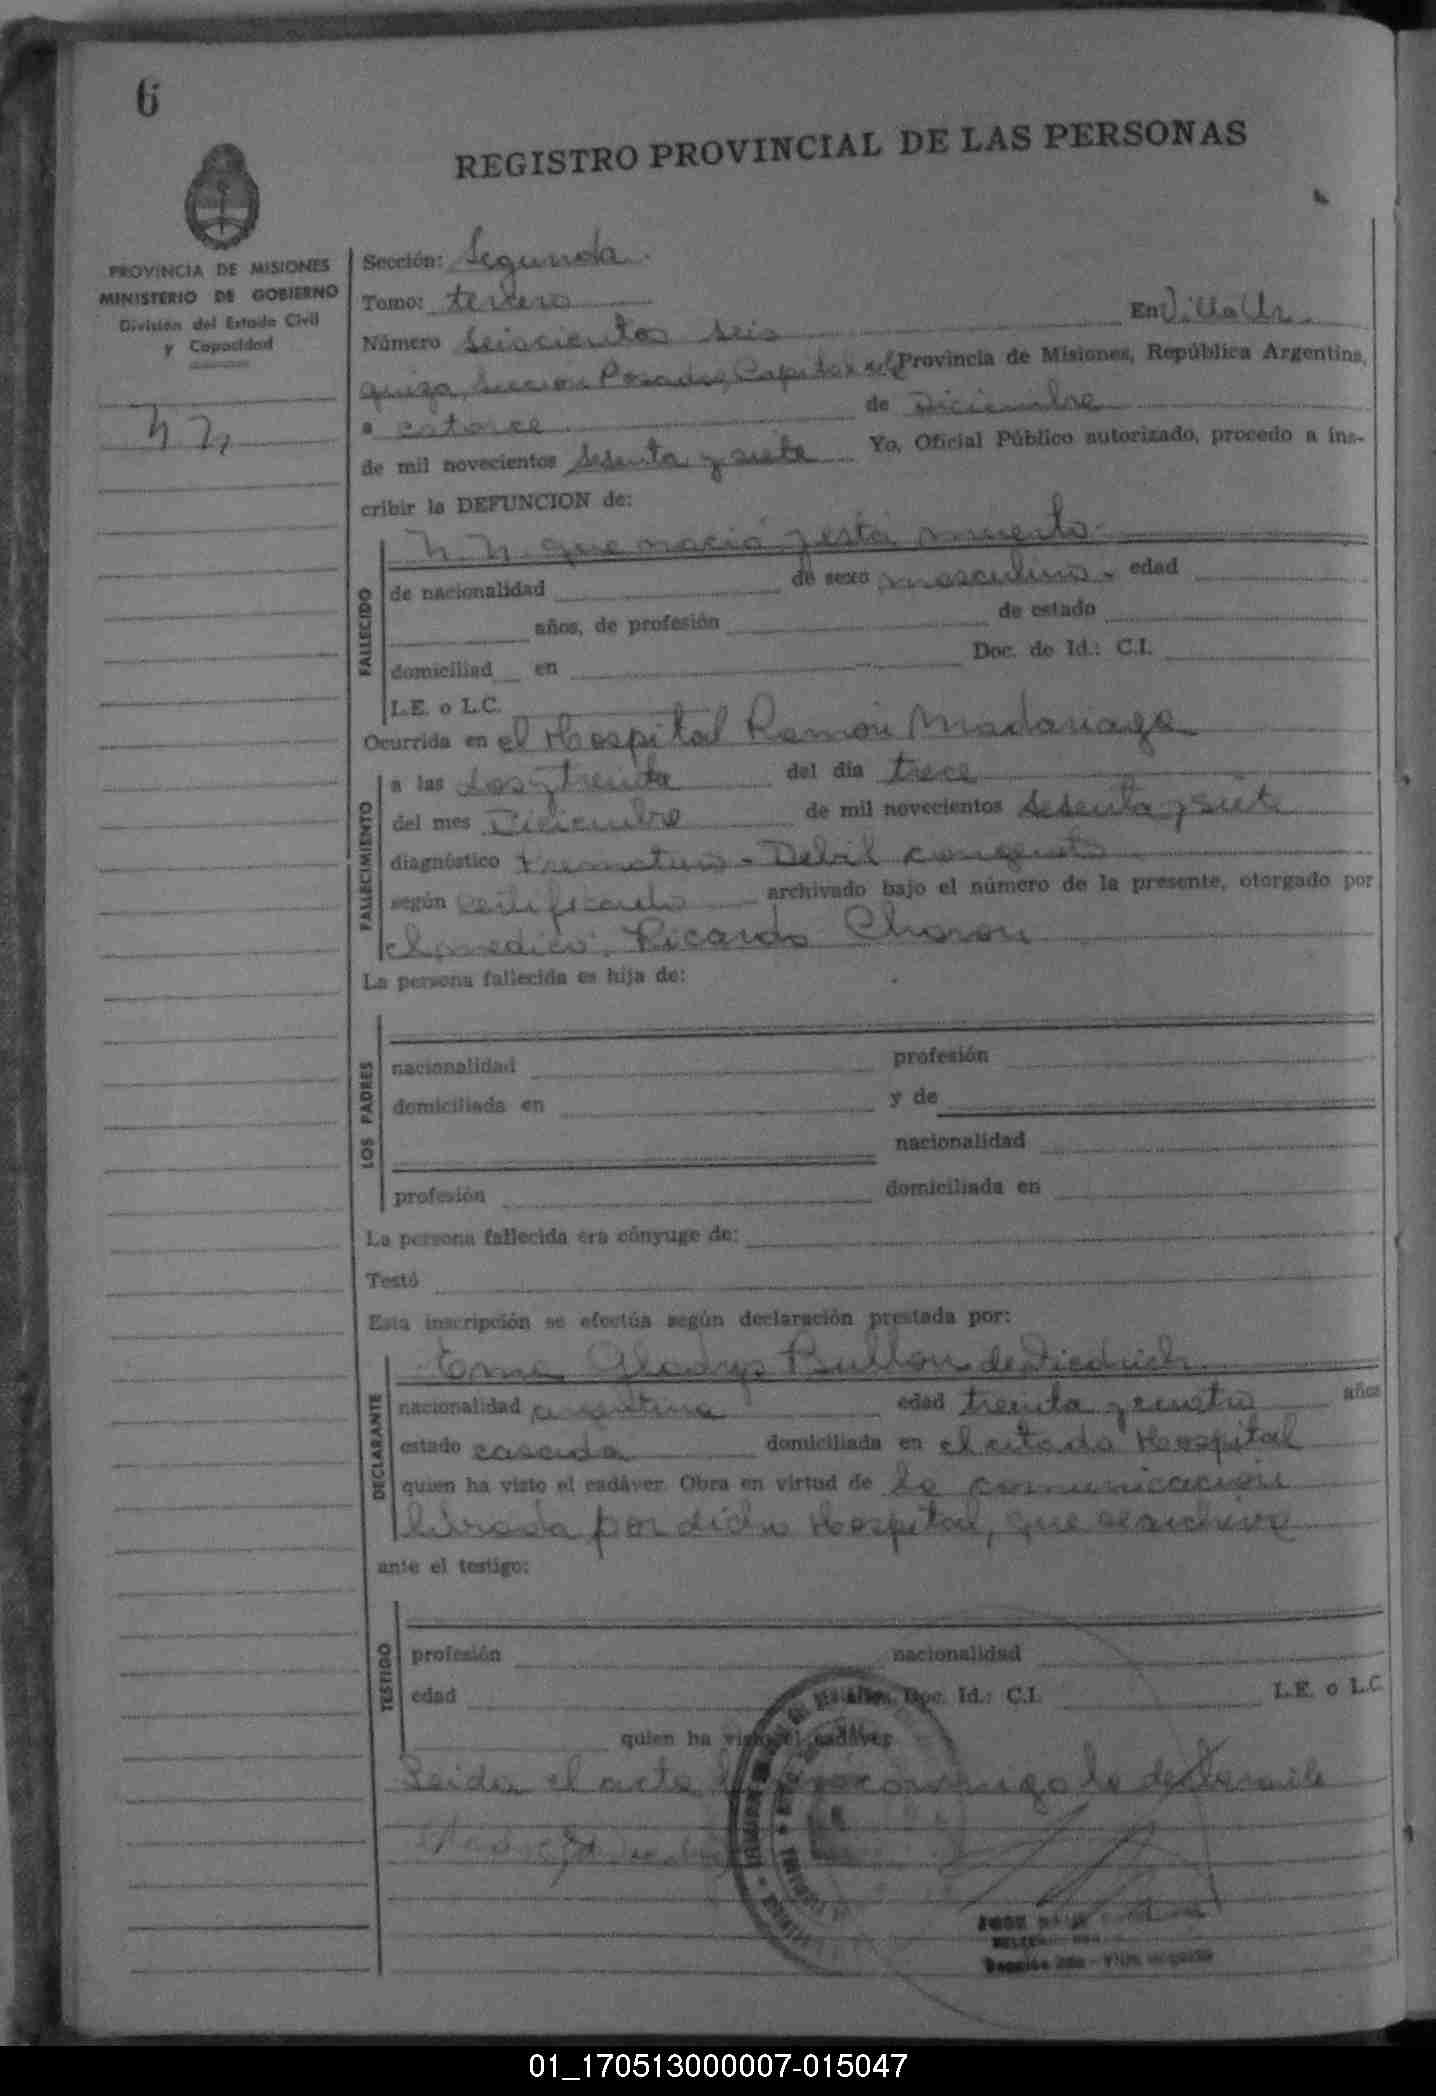 6
REGISTRO PROVINCIAL DE LAS PERSONAS
PROVINCIA DE MISIONES
MINISTERIO DE GOBIERNO
División del Estado Civil
y Capacidad
N N
Sección: Segunda
Tomo: tercero
Número Seiscientos seis En Villa Ur
quiza, Seccion Posadas, Capital de la Provincia de Misiones, República Argentina,
a catorce de Diciembre
de mil novecientos sesenta y siete Yo, Oficial Público autorizado, procedo a ins-
cribir la DEFUNCION de:
FALLECIDO
N. N. que nació y está muerto
de nacionalidad de sexo masculino edad
años, de profesión de estado
domiciliad en Doc. de Id.: C.I.
L.E. o L.C.
Ocurrida en el Hospital Ramón Madariaga
FALLECIMIENTO
a las dos y treinta del día trece
del mes Diciembre de mil novecientos sesenta y siete
diagnóstico Prematuro - Debil congenito
según certificado archivado bajo el número de la presente, otorgado por
el medico: Ricardo
La persona fallecida es hija de:
LOS PADRES
nacionalidad profesión
domiciliada en y de
nacionalidad
profesión domiciliada en
La persona fallecida era cónyuge de:
Testó
Esta inscripción se efectúa según declaración prestada por:
DECLARANTE
Ema Gladys de Diedrich
nacionalidad argentina edad treinta y cuatro años
estado casada domiciliada en el citado Hospital
quien ha visto el cadáver. Obra en virtud de la comunicación
librada por dicho Hospital, que se archiva
ante el testigo:
TESTIGO
profesión nacionalidad
edad años, Doc. Id.: C.I. L.E. o L.C.
quien ha visto el cadáver
Leida el acta la conmigo la declarante
01_170513000007-015047